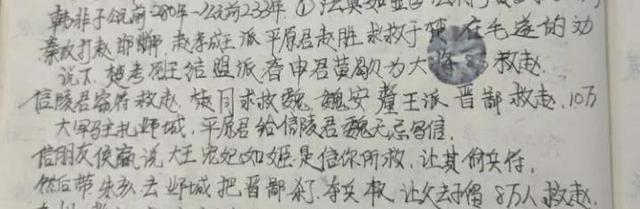 韩非子公元前280年—公元前233年. ①法
秦攻打赵 邯郸. 赵孝成王派平原君赵胜求救于 在毛遂的劝
说下. 楚考烈王结盟派春申君黄歇为大将 救赵.
信陵君窃符救赵. 求救魏. 魏安釐王派 晋鄙救赵. 10万
大军驻扎邺城. 平原君给信陵君魏无忌写信.
信朋友侯嬴说大王宠妃如姬是信你所救. 让其偷兵符.
然后带朱亥去邺城把晋鄙杀. 夺兵权. 让父子留 8万人救赵.